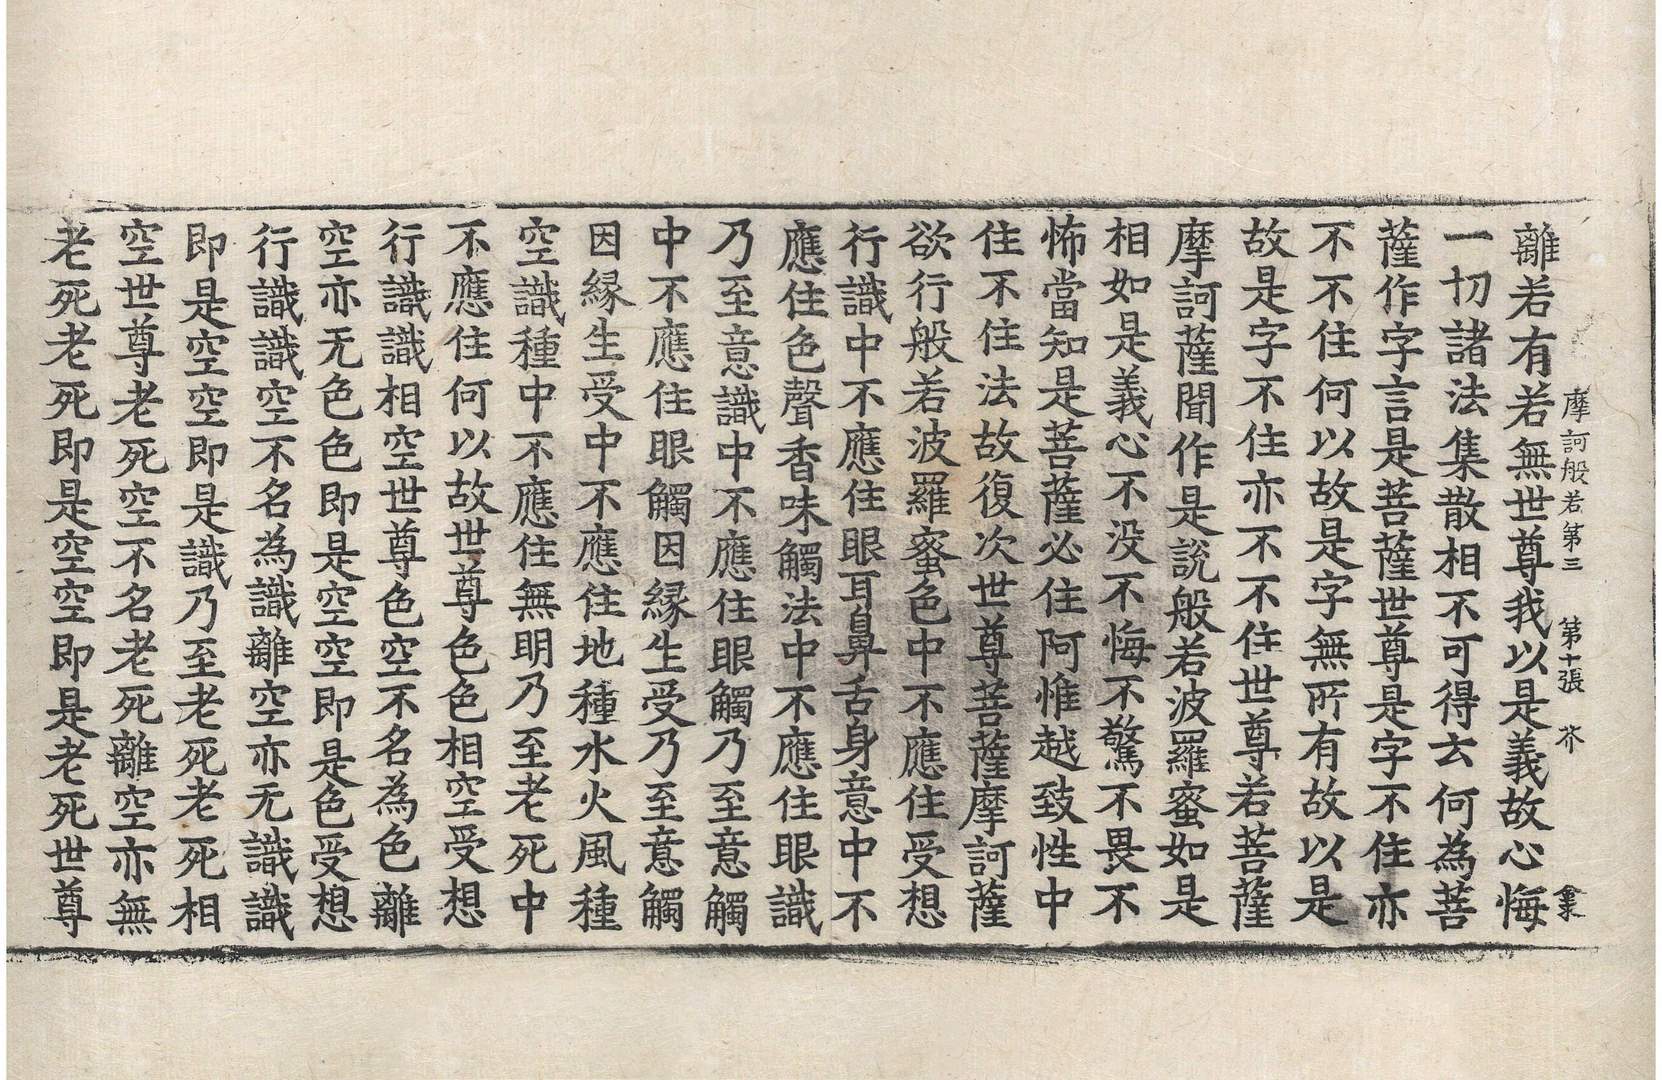 摩訶般若第三 第十張 芥
離若有若無世尊我以是義故心悔
一切諸法集散相不可得云何為菩
薩作字言是菩薩世尊是字不住亦
不不住何以故是字無所有故以是
故是字不住亦不不住世尊若菩薩
摩訶薩聞作是說般若波羅蜜如是
相如是義心不没不悔不驚不畏不
怖當知是菩薩必住阿惟越致性中
住不住法故復次世尊菩薩摩訶薩
欲行般若波羅蜜色中不應住受想
行識中不應住眼耳鼻舌身意中不
應住色聲香味觸法中不應住眼識
乃至意識中不應住眼觸乃至意觸
中不應住眼觸因縁生受乃至意觸
因縁生受中不應住地種水火風種
空識種中不應住無明乃至老死中
不應住何以故世尊色色相空受想
行識識相空世尊色空不名為色離
空亦无色色即是空空即是色受想
行識識空不名為識離空亦无識識
即是空空即是識乃至老死老死相
空世尊老死空不名老死離空亦無
老死老死即是空空即是老死世尊